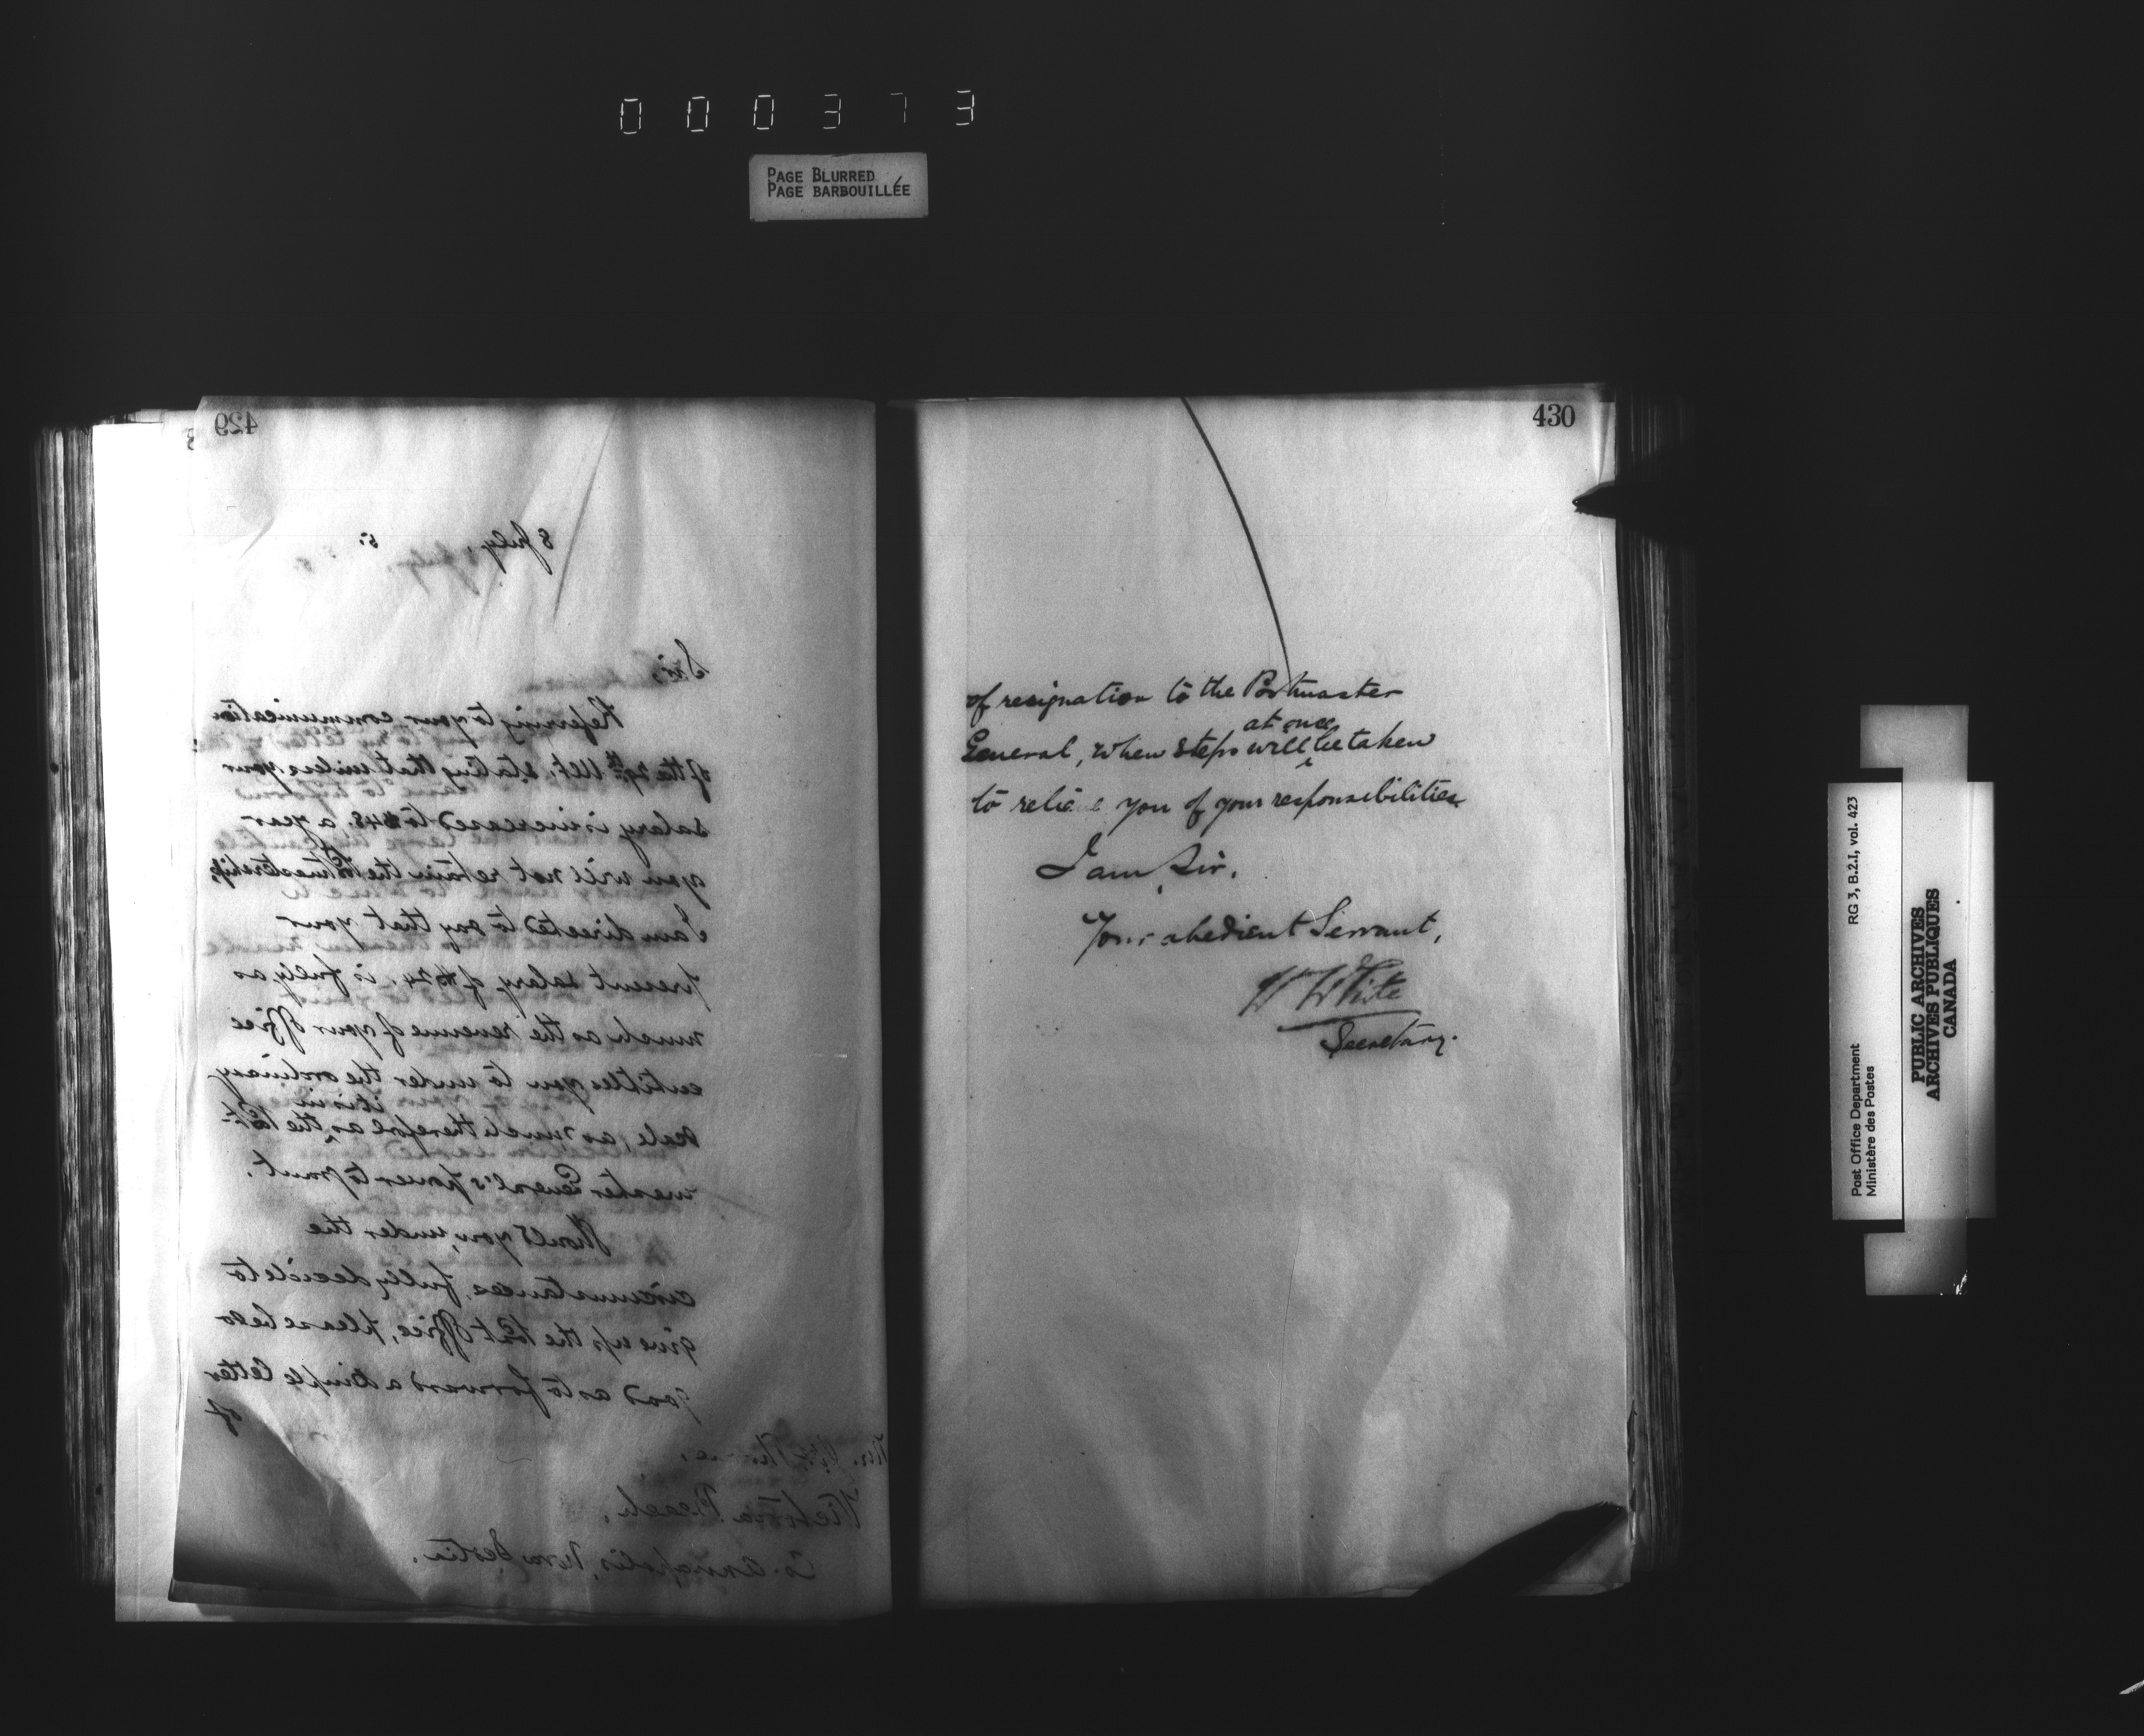 000373
PAGE BLURRED
PAGE BARBOUILLÉE
429
8 July, 5.
Sir,
Referring to your communication
of the 29th Ult, stating that unless your
salary is increased to $48. a year
you will not retain the Postmastership,
I am directed to say that your
present salary of $24. is fully as
much as the revenue of your office
entitles you to under the ordinary
scale, as much therefore as it is in the Post-
master General's power to grant.
Should you, under the
circumstances, fully decide to
give up the Post Office, please be so
good as to forward a simple letter
of
Mr.
Victoria Beach,
Co. Annapolis, Nova Scotia.
430
of resignation to the Postmaster
General, when steps will at once be taken
to relie e you of your responsibilities
I am, Sir,
Your obedient Servant,
W White
Secretary.
RG 3, B.2.I, vol. 423
Post Office Department
Ministère des Postes
PUBLIC ARCHIVES
ARCHIVES PUBLIQUES
CANADA